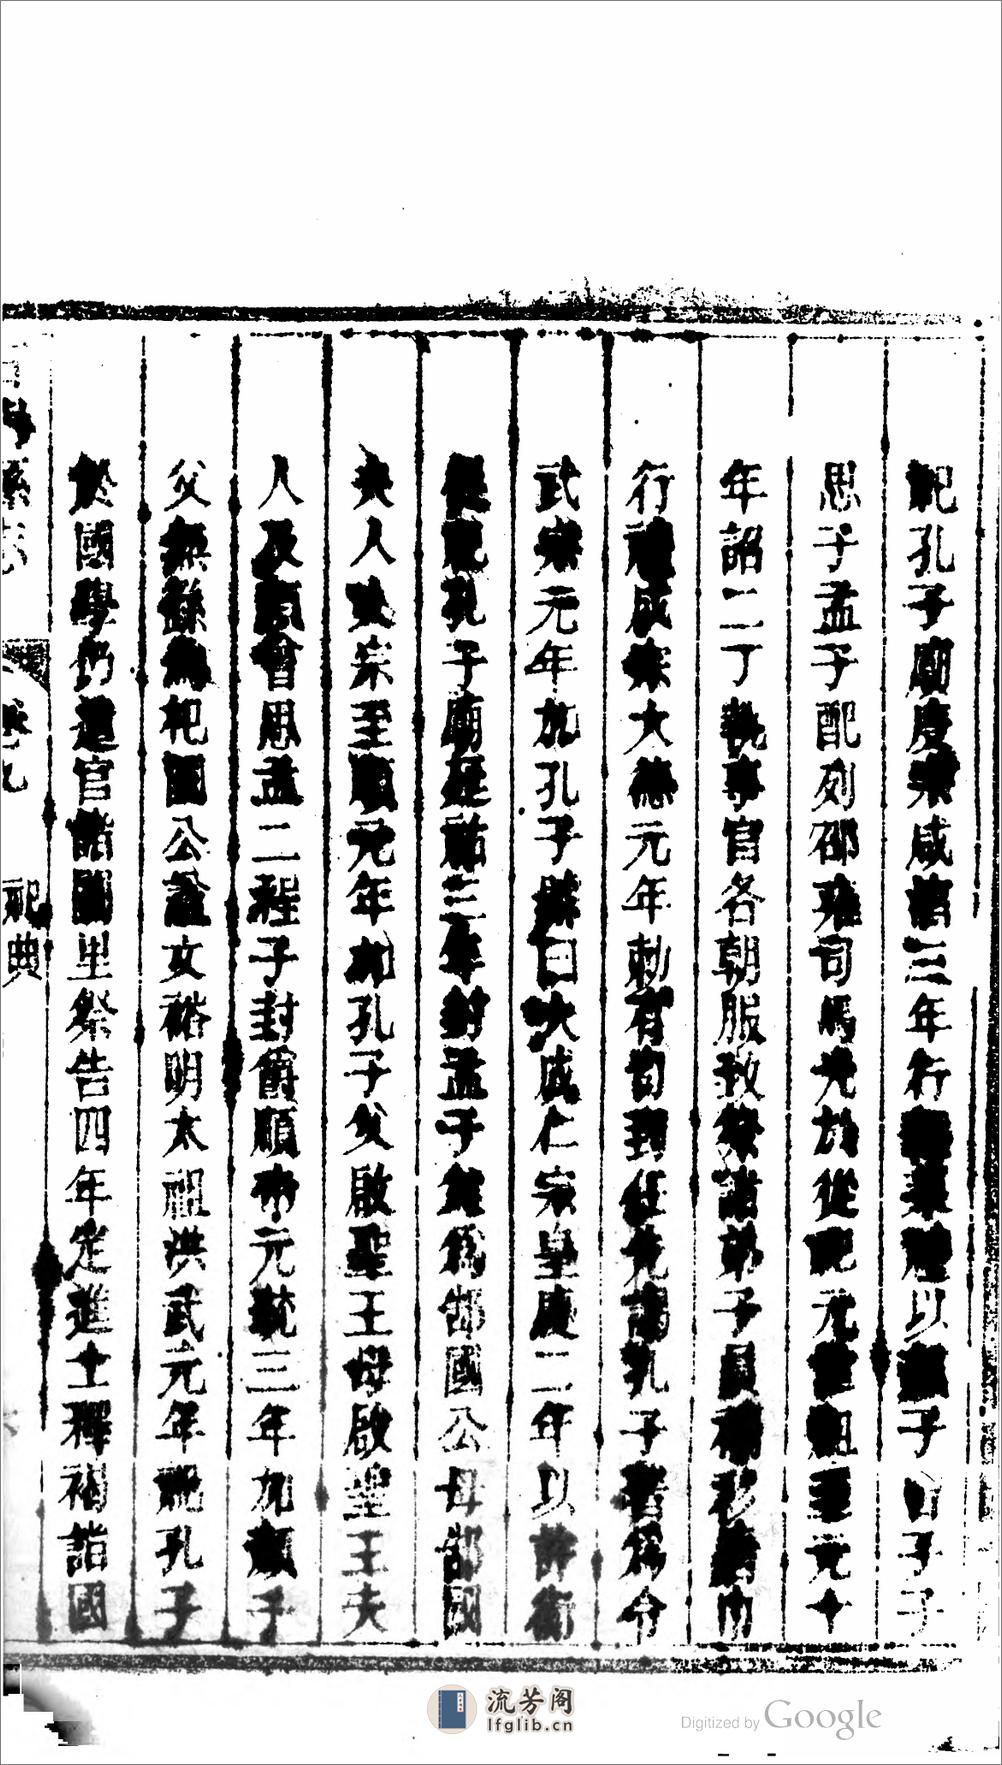 祀孔子廟度宗咸淳三年行釋菜禮以顏子曾子子
思子孟子配列邵雍司馬光於從祀元世祖至元十
年詔二丁執事官各朝服致祭諸弟子員襴衫唐巾
行禮成宗大德元年勅有司到任先謁孔子著為令
武宗元年加孔子號曰大成仁宗皇慶二年以許衡
從祀孔子廟延祐三年封孟子父為邾國公母邾國
夫人文宗至順元年加孔子父啟聖王母啟聖王夫
人及顏曾思孟二程子封爵順帝元統三年加顏子
父無繇為杞國公諡文裕明太祖洪武元年祀孔子
於國學仍遣官詣闕里祭告四年定進士釋褐詣國
縣志 卷九 祀典
流芳阁
lfglib.cn
Digitized by Google